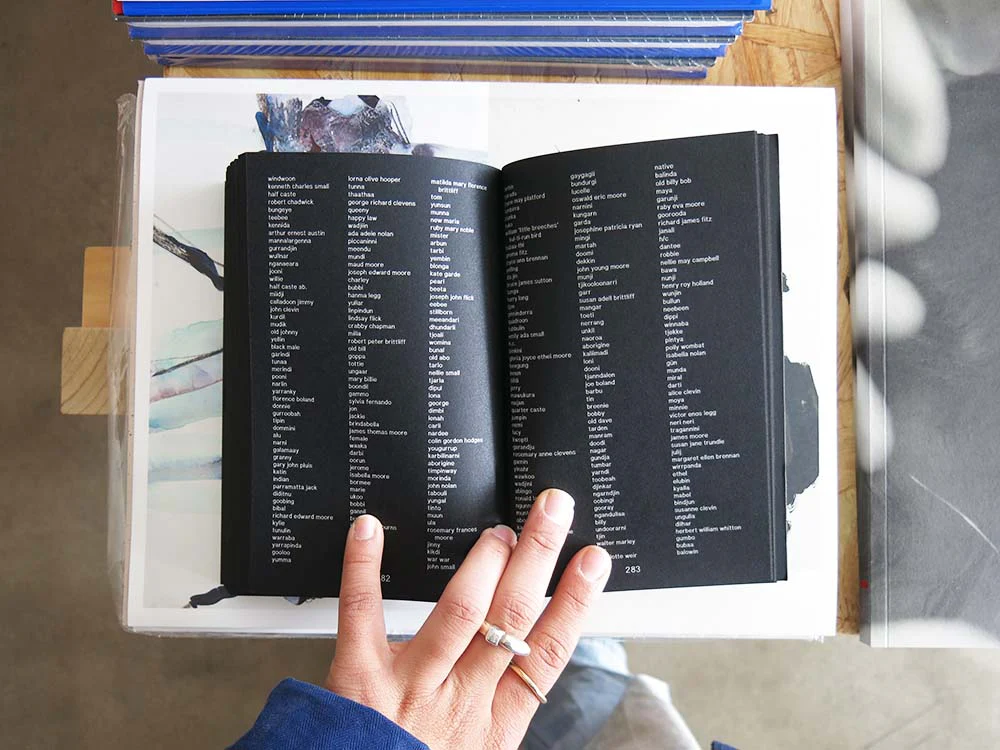 windwoon
kenneth charles small
half caste
robert chadwick
bungeye
teebee
kennida
arthur ernest austin
mannalargenna
gurrandjin
wullnar
nganaeara
jooni
willie
half caste ab.
miidji
calladoon jimmy
john clevin
kurdil
mudik
old johnny
yellin
black male
garindi
tunaa
merindi
pooni
narlin
yarranky
florence boland
donnie
gurroobah
tipin
dommini
alu
narni
galamaay
granny
gary john pluis
katin
indian
parramatta jack
diditnu
goobing
bibal
richard edward moore
kylie
tunulin
warraba
yarrapinda
gooloo
yumma
lorna olive hooper
tunna
thaathaa
george richard clevens
queeny
happy law
wadjiin
ada adele nolan
piccaninni
meendu
mundi
maud moore
joseph edward moore
charley
bubbi
hanma legg
yullar
linpindun
lindsay flick
crabby chapman
milla
robert peter brittliff
old bill
goppa
tottie
ungaar
mary billie
boondil
gammo
sylvia fernando
jon
jackie
brindabella
james thomas moore
female
waaka
darbi
oorun
jerome
isabella moore
bormee
marie
ukoo
bobbi
82
matilda mary florence
brittliff
tom
yunsun
munna
new marie
ruby mary noble
mister
arbun
tarbi
yembin
blonga
kate garde
pearl
beeta
joseph john flick
eebee
stillborn
meeandari
dhundarli
tjoali
womina
bunal
old abo
tarlo
nellie small
tjarla
dipul
iona
george
dimbi
lonah
carli
nardee
colin gordon hodges
yougurrup
karbilinarni
aborigine
timpinway
morinda
john nolan
tabouli
yungal
tinto
muun
ula
rosemary frances
moore
jinny
kikdi
war war
john small
may platford
william 'little breeches'
bul-ti-run bird
ann brennan
james sutton
harry long
ada small
joyce ethel moore
quarter caste
lucy
rosemary anne clevens
gaygagii
bundurgi
lucelle
oswald eric moore
narnini
kungarn
garda
josephine patricia ryan
mingi
martah
doomi
dekkin
john young moore
munji
tjikooloonarri
garr
susan adell brittliff
mangar
toeti
nerrang
unkil
naoroa
aborigine
kaliimadi
loni
dooni
tjanndalen
joe boland
barbu
tin
breenie
bobby
old dave
tarden
manram
doodi
nagar
gundja
tumbar
yarndi
toobeah
djinkar
ngarndjin
oobingi
gooray
ngandulisa
billy
undoorarni
tjin
walter marley
lotte weir
native
balinda
old billy bob
maya
garunji
raby eva moore
goorooda
richard james fitz
janali
h/c
dantee
robbie
nellie may campbell
bawa
nunji
henry roy holland
wunjin
bullun
neebeen
dippi
winnaba
tjekke
pintya
polly wombat
isabella nolan
gün
munda
miral
darti
alice clevin
moya
minnie
victor enos legg
neri neri
tragannini
james moore
susan jane trundle
julij
margaret ellen brennan
wirrpanda
ethel
elubin
kyalla
mabel
bindjun
susanne clevin
ungulla
dilhar
herbert william whitton
gumbo
bubaa
balowin
283